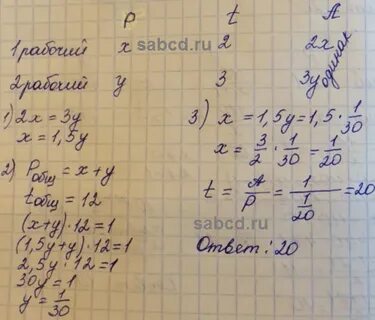 P t A
1 рабочий x 2 2x
2 рабочий y 3 3y
одинак
1) 2x = 3y
x = 1,5y
2) Pобщ = x + y
tобщ = 12
(x+y)·12 = 1
(1,5y+y)·12 = 1
2,5y·12 = 1
30y = 1
y = 1/30
3) x = 1,5y = 1,5 · 1/30
x = 3/2 · 1/30 = 1/20
t = A/P = 1/(1/20) = 20
Ответ: 20
sabcd.ru
sabcd.ru